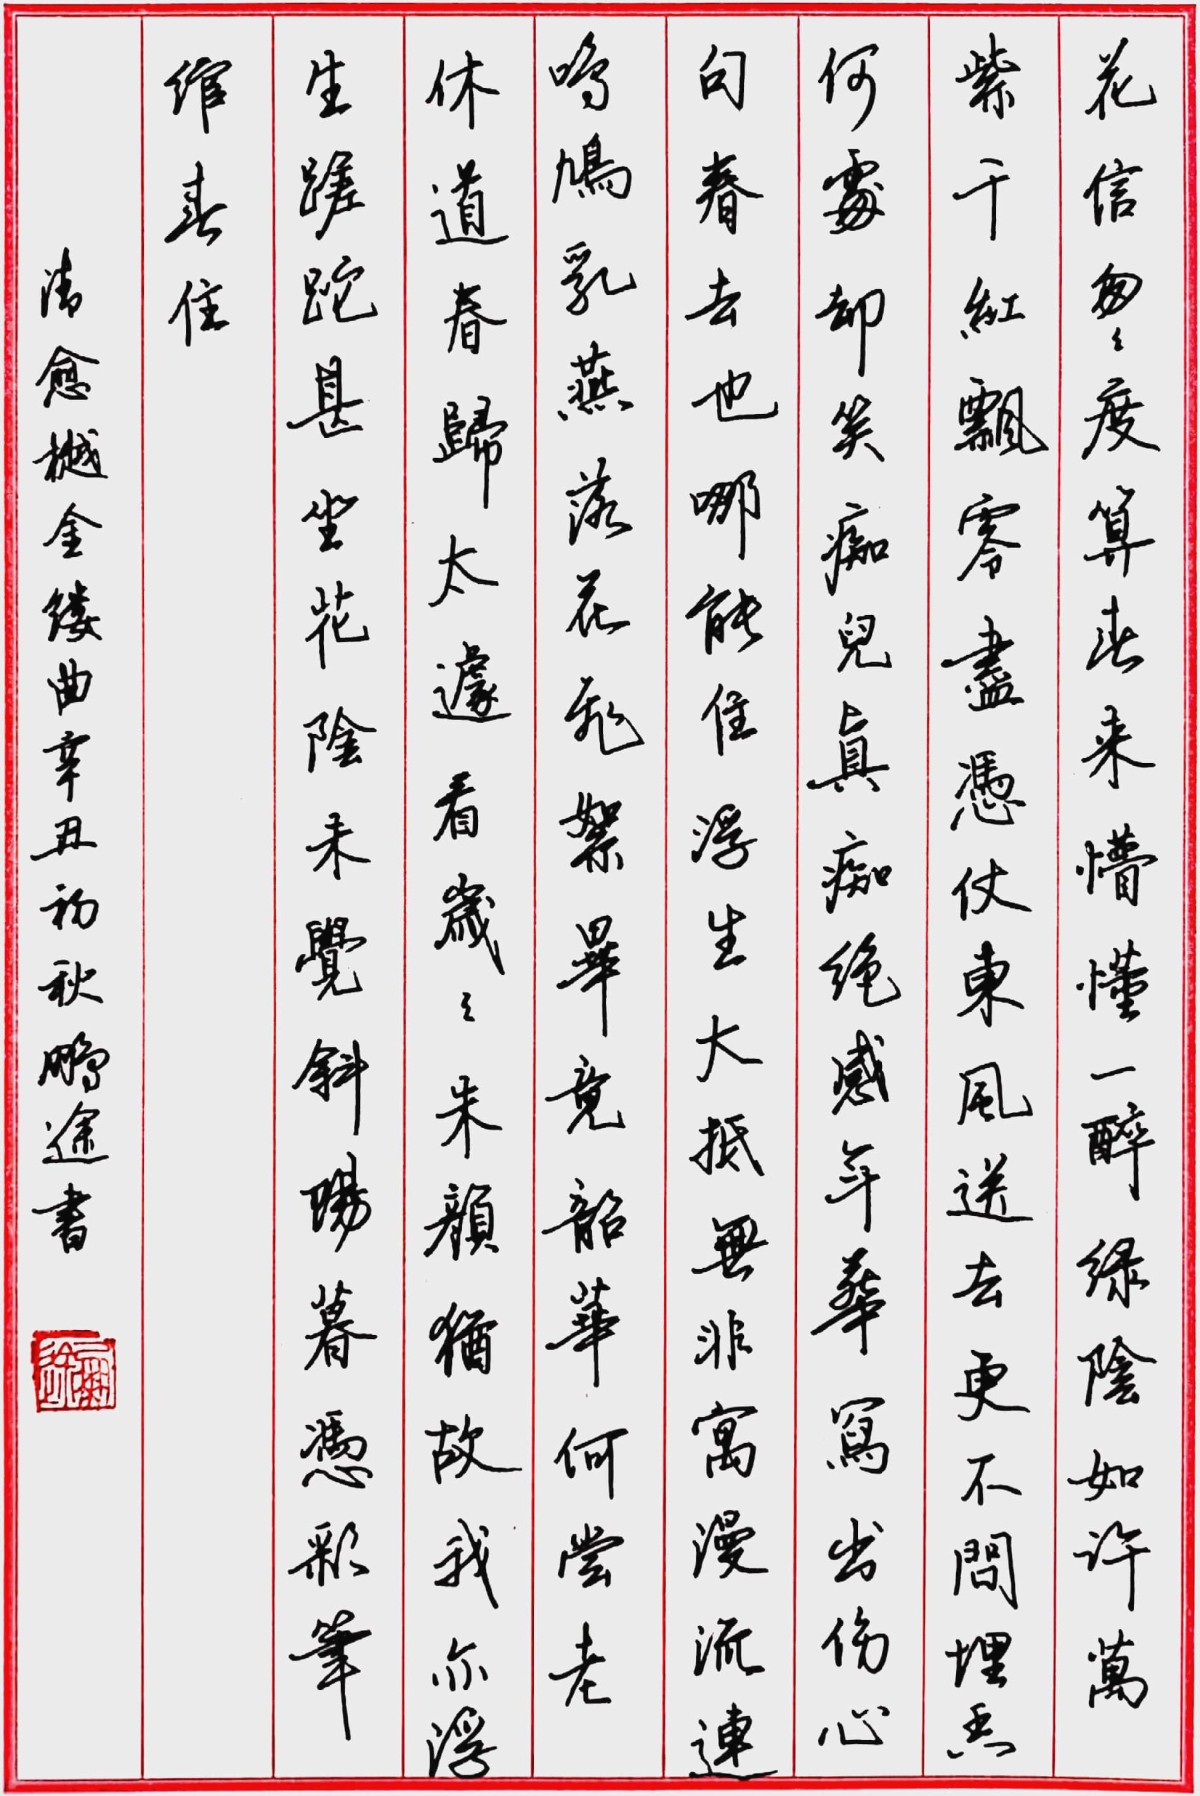 花信匆々度算春来懵懂一醉绿陰如许萬
紫千紅飄零盡憑仗東風送去更不問埋香
何處却笑痴兒真痴绝感年華寫出伤心
句春去也哪能住浮生大抵無非寓漫流連
鸣鳩乳燕落花飛絮畢竟韶華何尝老
休道春歸太遽看歲々朱顔猶故我亦浮
生蹉跎甚坐花陰未覺斜陽暮憑彩筆
绾春住
清愈樾金缕曲辛丑初秋鹏途書